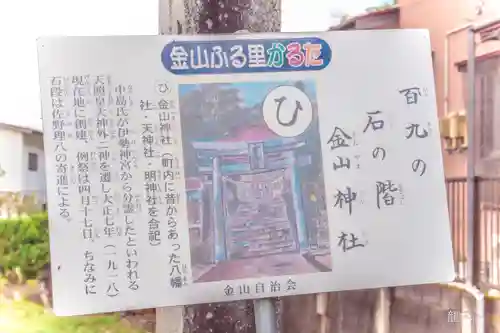 金山ふる里かるた
百九の
石の階
金山神社
ひ
ひ 金山神社(町内に昔からあった八幡
社・天神社・明神社を合祀)
中島氏が伊勢神宮から分霊したといわれる
天照皇大神外二神を遷し大正七年(一九一八)
現在地に創建。例祭は四月十七日。ちなみに
石段は佐野理八の寄進による。
金山自治会